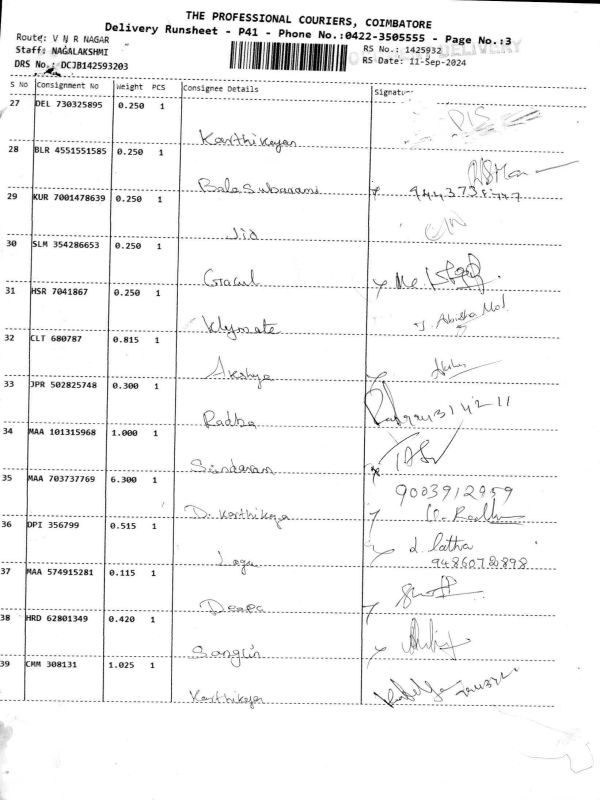 THE PROFESSIONAL COURIERS, COIMBATORE
Delivery Runsheet - P41 - Phone No.:0422-3505555 - Page No.:3
Route: V N R NAGAR
RS No.: 1425932
DELIVERY
Staff: NAGALAKSHMI
RS Date: 11-Sep-2024
DRS No.: DCJB142593203
S No Consignment No Weight PCS Consignee Details Signature
27 DEL 730325895 0.250 1
Karthikeyan
28 BLR 4551551585 0.250 1
Balasubaramani
29 KUR 7001478639 0.250 1
Jio
30 SLM 354286653 0.250 1
Gracul
31 HSR 7041867 0.250 1
Klymate
J. Abisha Mol
32 CLT 680787 0.815 1
Akshya
33 JPR 502825748 0.300 1
Radha
34 MAA 101315968 1.000 1
Sundaram
35 MAA 703737769 6.300 1
9003912959
D. Karthikeya
36 DPI 356799 0.515 1
d. latha
9486072898
Logu
37 MAA 574915281 0.115 1
Deepa
38 HRD 62801349 0.420 1
SangUn
39 CMM 308131 1.025 1
Karthikeya